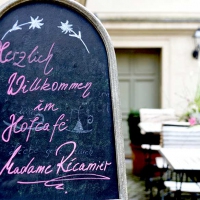 Herzlich
Willkommen
im
Hofcafé
Madame Récamier